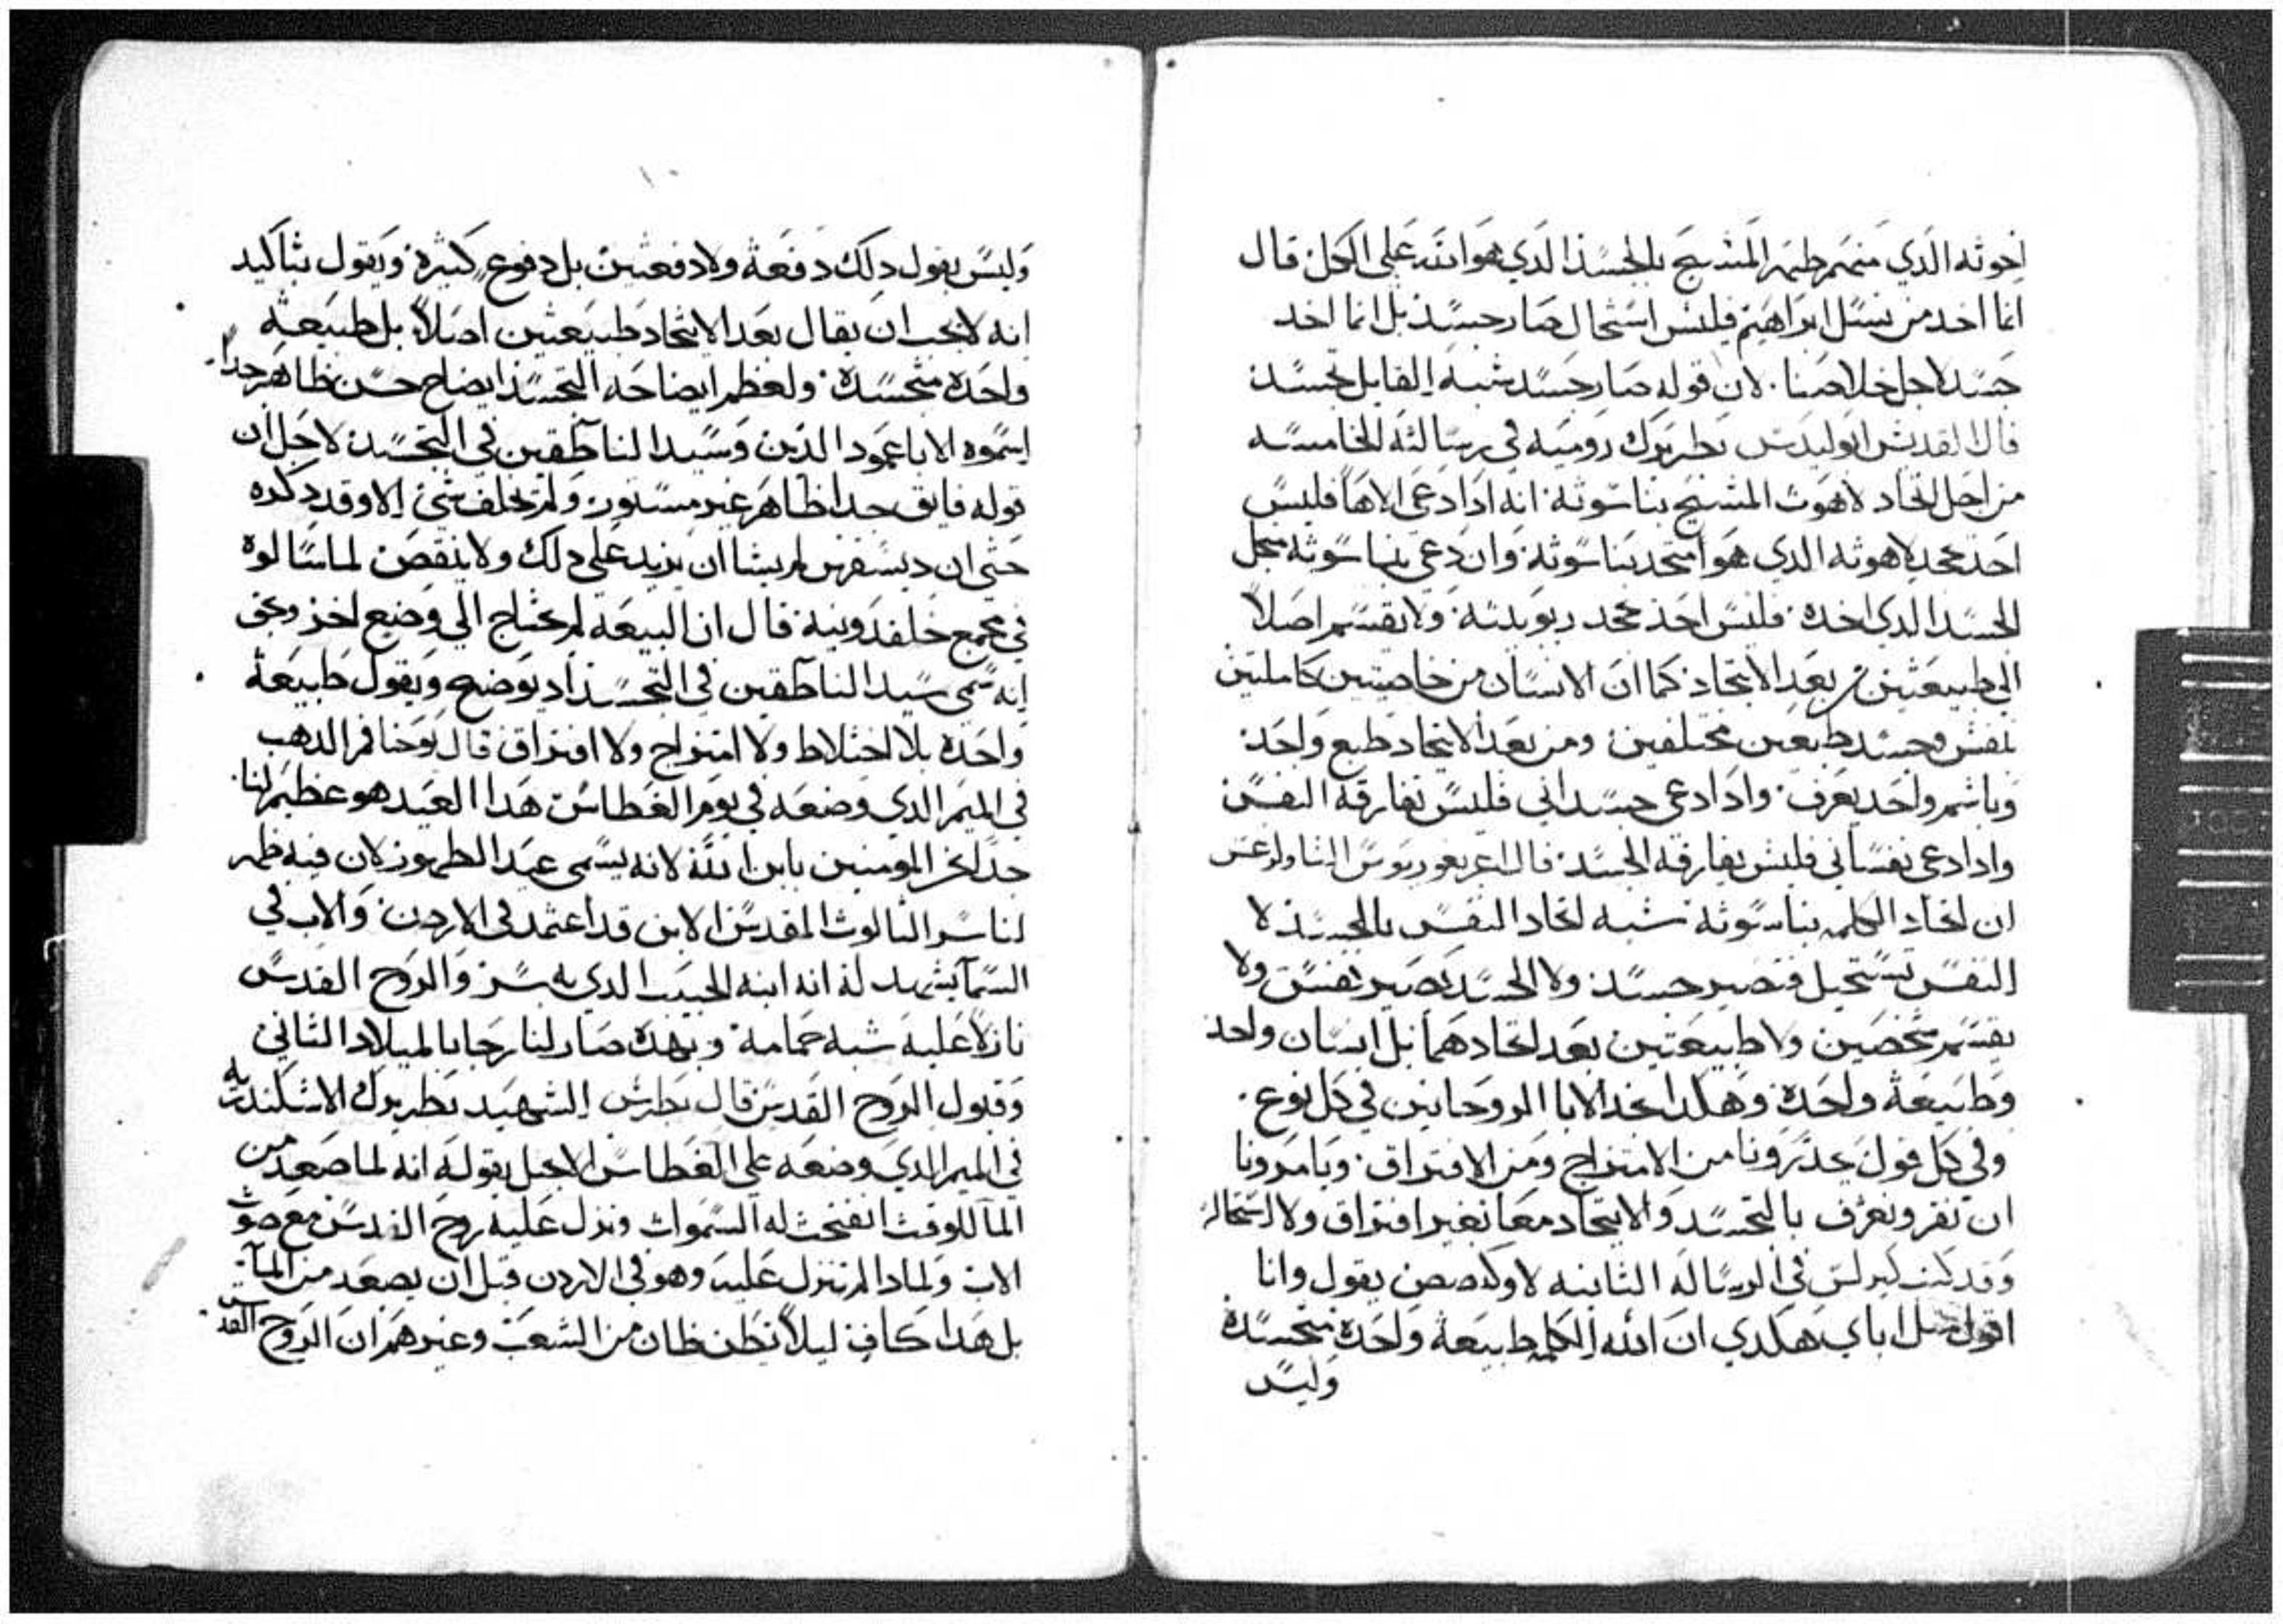 اخوته الدي منهم ظهر المسيح بالجسد الدي هو الله على الكل قال
انما اخد من نسل ابراهيم فليس استحال صار جسد بل انما اخد
جسد لاجل خلاصنا. لان قوله صار جسد شبه القايل تجسد
قال القديس ابوليدس بطريرك رومية في رسالته الخامسه
من اجل اتحاد لاهوت المسيح بناسوته انه ادا دعى الاهاً فليس
احد يجحد لاهوته الدي هو متحد بناسوته وان دعى بناسوته مجل
الجسد الدي اخده فليس احد يجحد ربوبيته ولا يقسم اصلاً
الى طبيعتين من بعد الاتحاد كما ان الانسان من خاصيتين كاملتين
نفس وجسد طبعين مختلفين ومن بعد الاتحاد طبع واحد
وباسم واحد يعرف وادا دعى جسداني فليس تفارقه النفس
وادا دعى نفساني فليس يفارقه الجسد قال اغريغوريوس
ان اتحاد الكلمه بناسوته شبه اتحاد النفس بالجسد لا
النفس تستحيل فتصير جسد ولا الجسد يصير نفس ولا
يقسم شخصين ولا طبيعتين بعد اتحادهما بل انسان واحد
وطبيعة واحدة وهكدا نجد الابا الروحانين في كل نوع.
وفي كل قول يحذرونا من الامتزاج ومن الافتراق. ويامرونا
ان نقر ونعرف بالتجسد والاتحاد معاً بغير افتراق ولا استحاله
وقد كتب كيرلس في الرساله الثانيه لاوكصص يقول وانا
اقول مثل اباى هكدي ان الله الكلمه طبيعة واحدة متجسدة
وليس
١٠
وليس يقول دلك دفعة ولا دفعتين بل دفوع كتيرة ويقول بتاكيد
انه لا يجب ان يقال بعد الاتحاد طبيعتين اصلاً بل طبيعة
واحدة متجسدة. ولعظم ايضاحه التجسد ايضاح حسن ظاهر جداً
اسموه الابا عمود الدين وسيد الناطقين في التجسد لاجل ان
قوله فايق جدا ظاهر غير مستور ولم يخلف شي الا وقد دكره
حتى ان ديسقرس لم يشا ان يزيد على دلك ولا ينقص لما سالوه
في مجمع خلقدونية قال ان البيعه لم تحتاج الى وضيع اخر وبحق
انه سمى سيد الناطقين في التجسد اد يوضح ويقول طبيعة
واحدة بلا اختلاط ولا امتزاج ولا افتراق قال يوحنا فم الدهب
في الميمر الدي وضعه في يوم الغطاس هدا العيد هو عظيم لنا
جداً نحن المومنين بابن الله لانه يسمى عيد الظهور لان فيه ظهر
لنا سر التالوت المقدس الابن قد اعتمد في الاردن والاب في
السما يشهد له انه ابنه الحبيب الدي به سر والروح القدس
نازلاً عليه شبه حمامة وبهده صار لنا رجا بالميلاد الثاني
وقبول الروح القدس قال بطرس الشهيد بطريرك الاسكندريه
في الميمر الدي وضعه على الغطاس لاجل يقوله انه لما صعد من
الما للوقت انفتحت له السموات ونزل عليه روح القدس مع صوت
الاب ولمادا لم تنزل عليه وهو في الاردن قبل ان يصعد من الما
بل هدا كاف ليلاً يظن ظان من الشعب وغيرهم ان الروح القدس